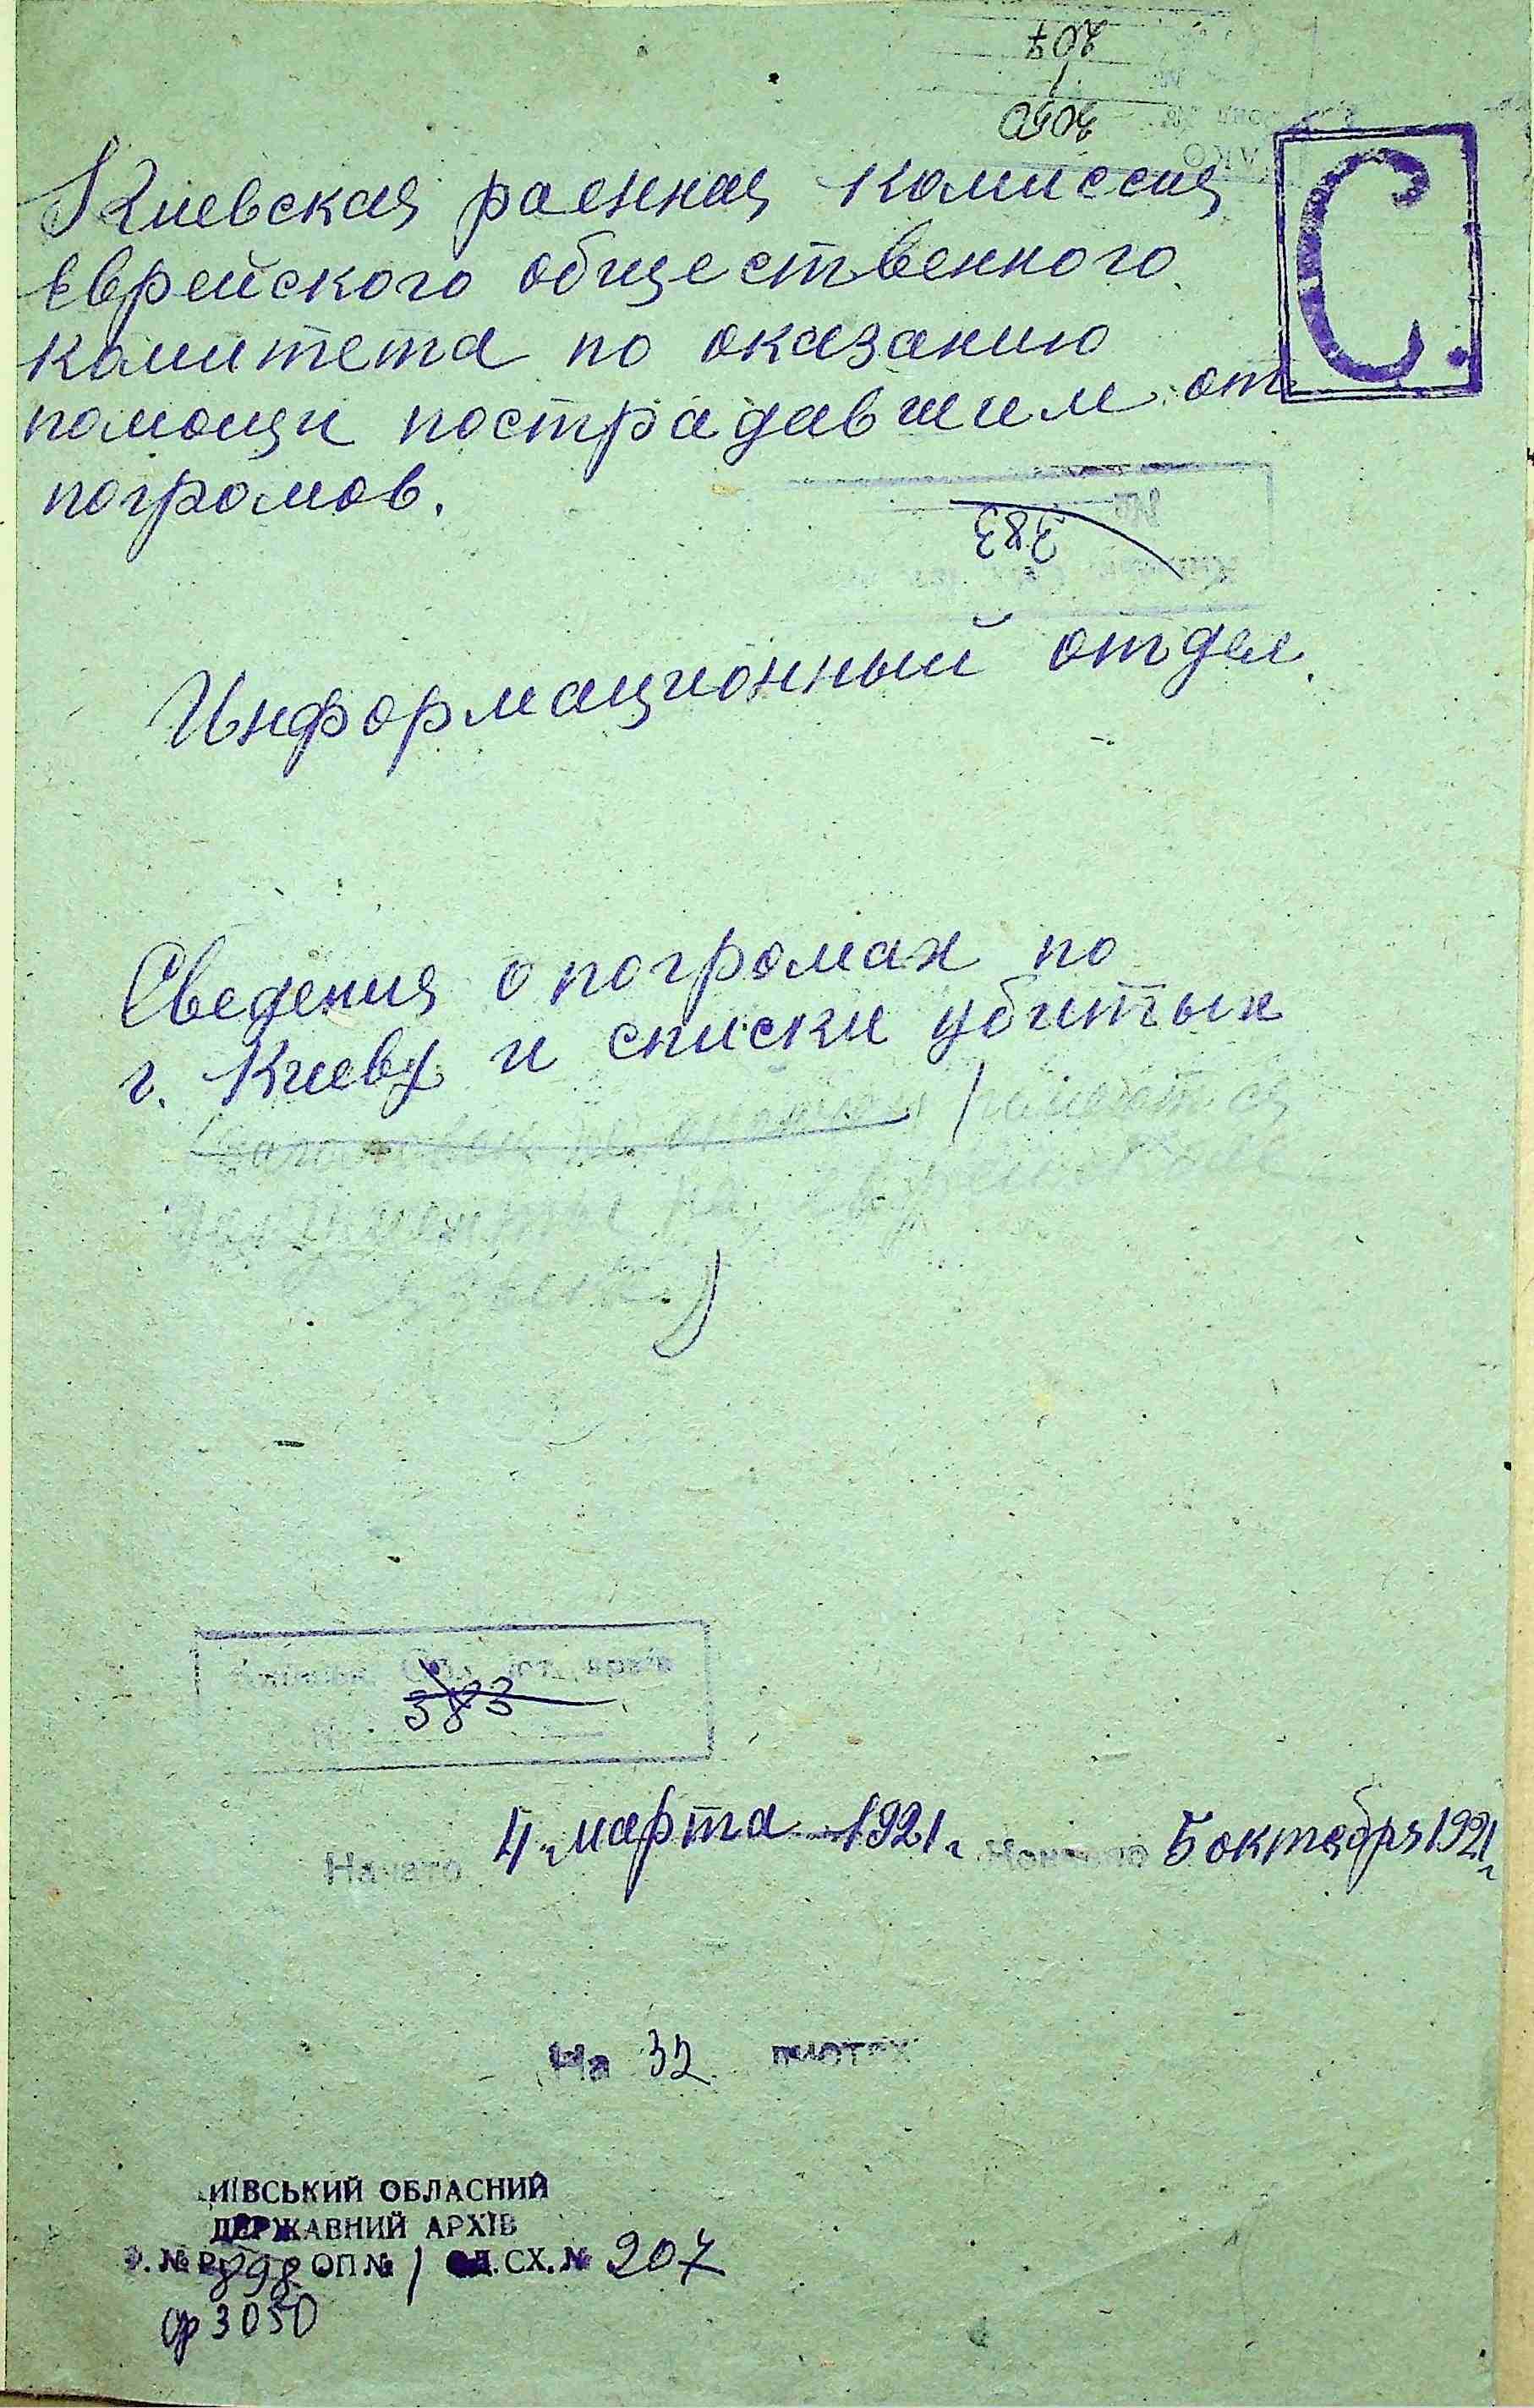 207
1
3050
С
Киевская раенная комиссия
Еврейского общественного
комитета по оказанию
помощи пострадавшим от
погромов.
383
Информационный отдел.
Сведения о погромах по
г. Киеву и списки убитых
383
Начато 4 марта 1921 г. Кончено 5 октября 1921 г.
На 32 листах
ИЇВСЬКИЙ ОБЛАСНИЙ
ДЕРЖАВНИЙ АРХІВ
Ф. № Р 898 ОП № 1 ОД. СХ. № 207
ф 3050